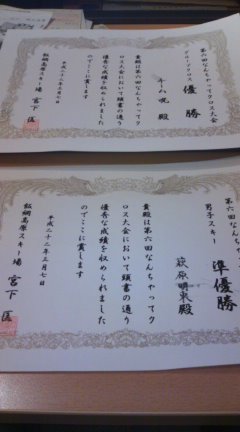 第六回なんちゃってクロス大会
グループクロス
優勝
チーム
殿
貴殿は第六回なんちゃってク
ロス大会において頭書の通り
優秀な成績を収められました
のでここに賞します
平成二十二年三月七日
飯綱高原スキー場
宮下
第六回なんちゃってクロス大会
男子スキー
準優勝
萩原
殿
貴殿は第六回なんちゃってク
ロス大会において頭書の通り
優秀な成績を収められました
のでここに賞します
平成二十二年三月七日
飯綱高原スキー場
宮下